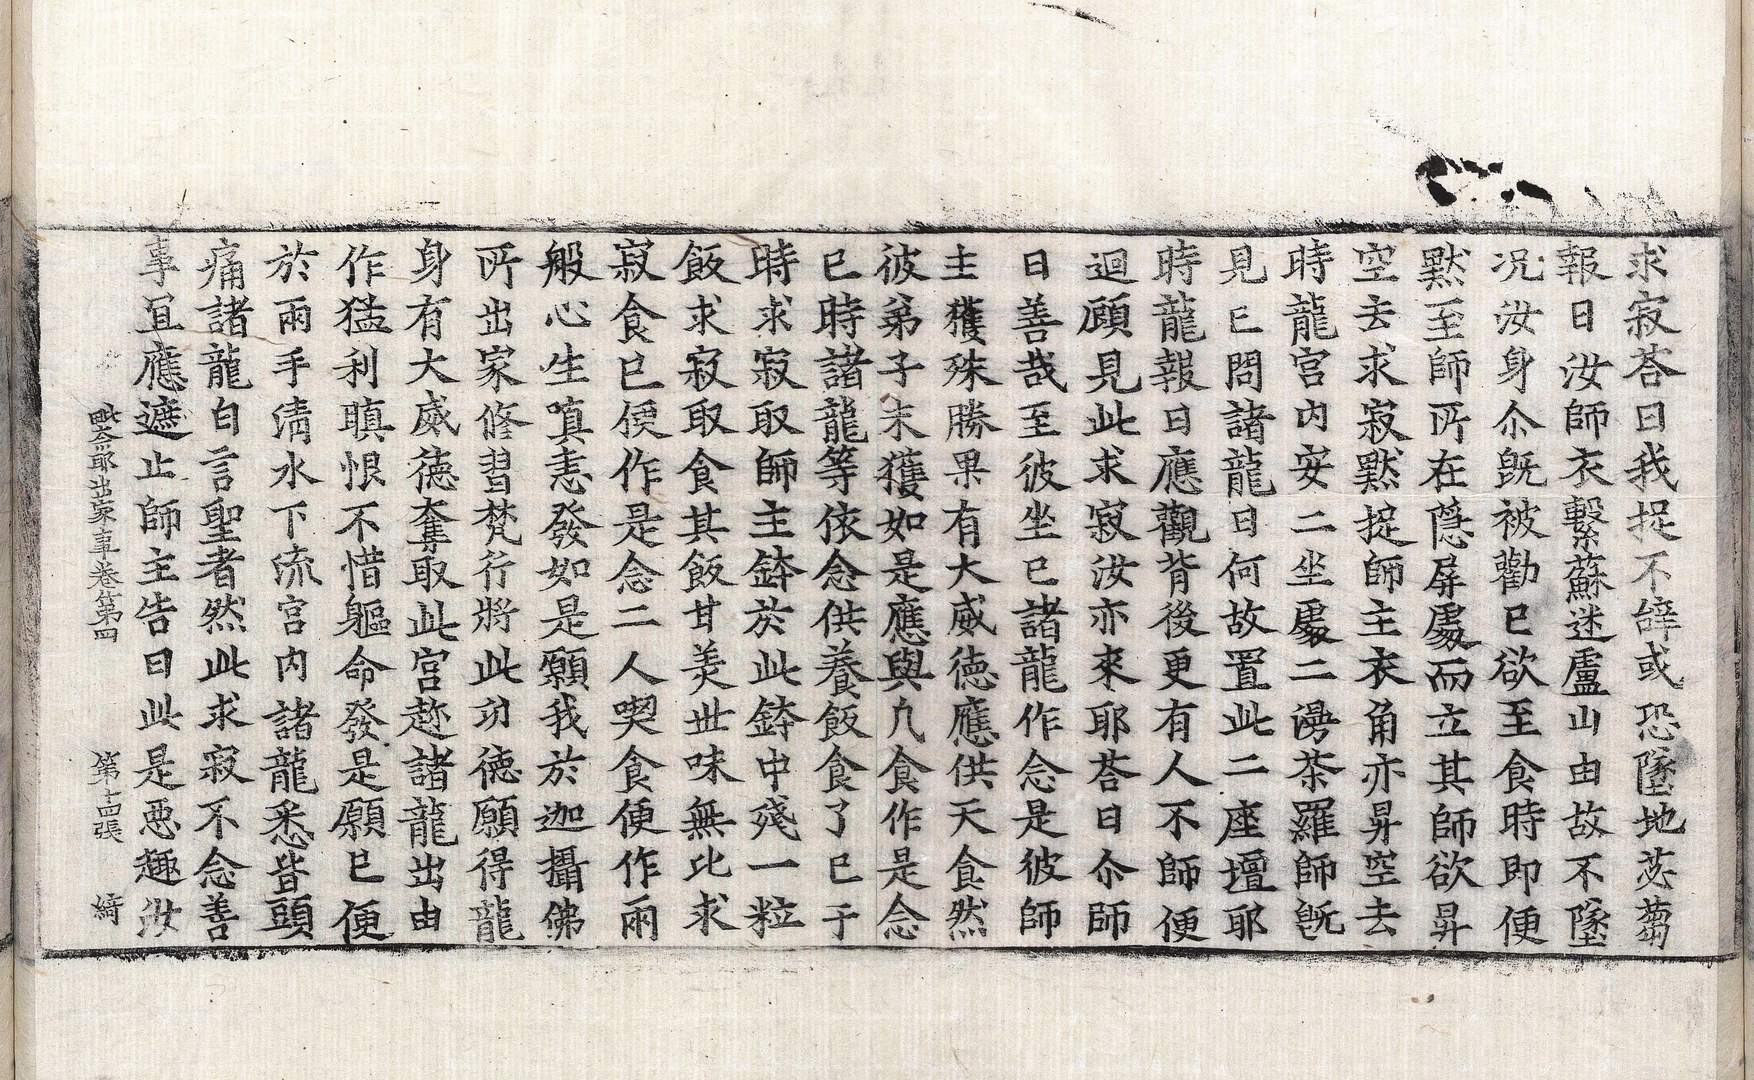 求寂荅曰我捉不辝或恐墜地苾蒭
報曰汝師衣繫蘇迷盧山由故不墜
况汝身尒旣被勸已欲至食時即便
默至師所在隱屛處而立其師欲昇
空去求寂默捉師主衣角亦昇空去
時龍宮内安二坐處二湯茶羅師旣
見已問諸龍曰何故置此二座壇耶
時龍報曰應觀背後更有人不師便
迴顧見此求寂汝亦來耶荅曰尒師
曰善哉至彼坐已諸龍作念是彼師
主獲殊勝果有大威德應供天食然
彼弟子未獲如是應與凡食作是念
已時諸龍等依念供養飯食了已于
時求寂取師主鉢於此鉢中殘一粒
飯求寂取食其飯甘美世味無比求
寂食已便作是念二人喫食便作兩
般心生嗔恚發如是願我於迦攝佛
所出家修習梵行將此功德願得龍
身有大威德奪取此宮趂諸龍出由
作猛利瞋恨不惜軀命發是願已便
於兩手淸水下流宮内諸龍悉皆頭
痛諸龍白言聖者然此求寂不念善
事宜應遮止師主告曰此是惡趣汝
毗奈耶出家事卷第四 第十四張 綺